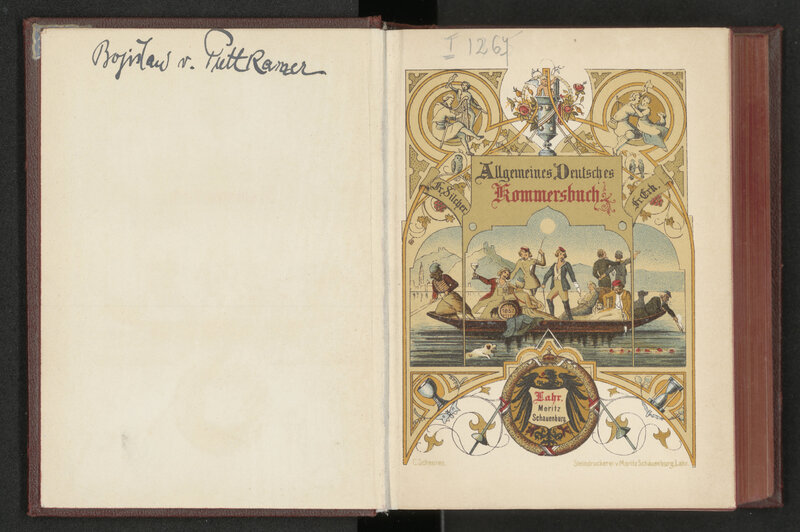 Bojislaw v. Puttkamer
I 1267
Allgemeines Deutsches
Kommersbuch
Fr. Silcher
Fr. Erk
Lahr,
Moritz
Schauenburg
C. Scheuren.
Steindruckerei v. Moritz Schauenburg, Lahr.